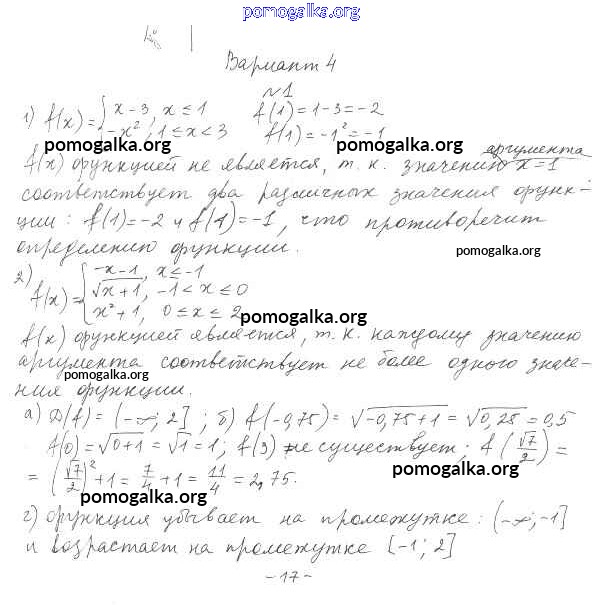 pomogalka.org
Вариант 4
№1
1) f(x)={ x-3, x≤1 f(1)=1-3=-2
-x², 1≤x<3 f(1)=-1²=-1
pomogalka.org pomogalka.org
f(x) функцией не является, т.к. значению аргумента x=1
соответствует два различных значения функ-
ции: f(1)=-2 и f(1)=-1, что противоречит
определению функции.
pomogalka.org
2) f(x)={ -x-1, x≤-1
√x+1, -1<x≤0
x²+1, 0≤x≤2
pomogalka.org
f(x) функцией является, т.к. каждому значению
аргумента соответствует не более одного значе-
pomogalka.org
ния функции.
а) D(f)=(-∞; 2]; б) f(-0,75)=√-0,75+1=√0,25=0,5
pomogalka.org
f(0)=√0+1=√1=1; f(3) не существует; f(√7/2)=
=(√7/2)²+1=7/4+1=11/4=2,75.
pomogalka.org
pomogalka.org
г) функция убывает на промежутке: (-∞; -1]
и возрастает на промежутке [-1; 2]
-17-